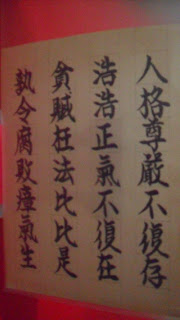 人格尊嚴不復存
浩浩正氣不復在
貪贓枉法比比是
執令腐敗瘴氣生